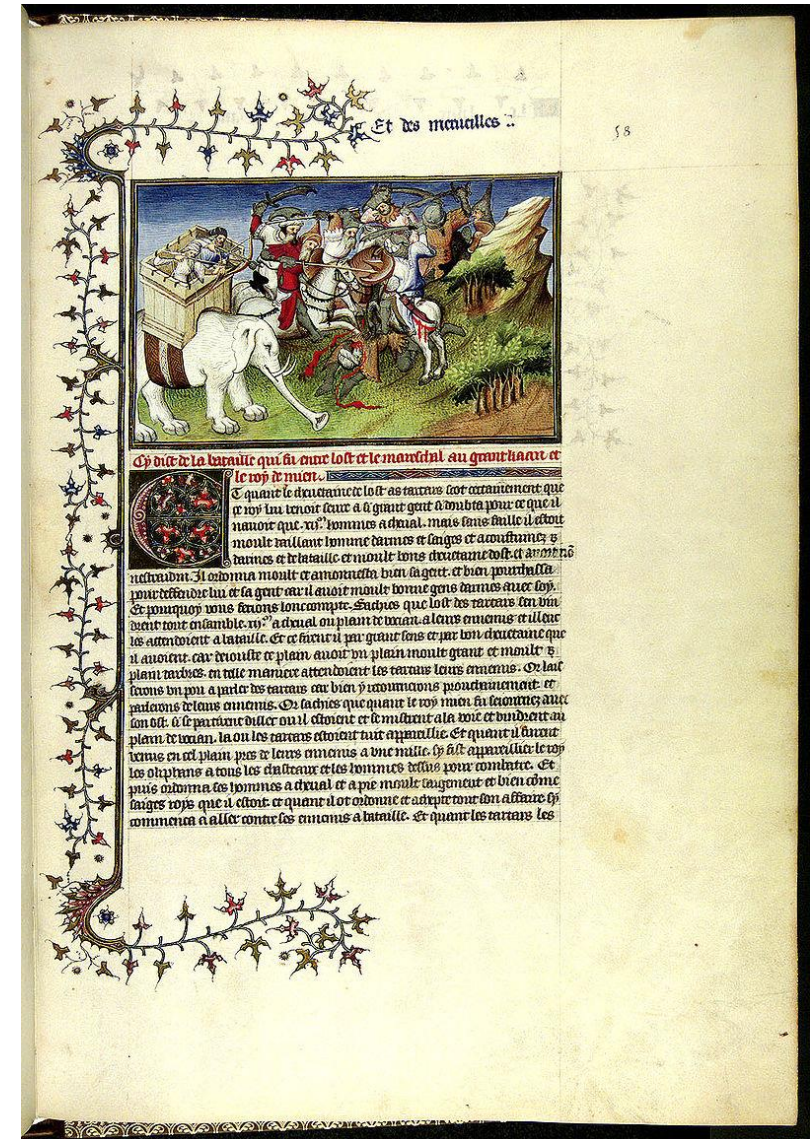 Et des merueilles
58
Cy dist de la bataille qui fu entre lost et le mareschal au grant kaan et
le roy de mien
Et quant le cheuetaine de lost as tartars scot certainement que
ce roy lui venoit seure a si grant gent si doubta pour ce que il
nauoit que .xij.ᵐ hommes a cheual. mais sans faille il estoit
moult vaillant homme darmes et saiges et acoustumez
darmes et de bataille et moult bons cheuetaine dost. et auoit nō
nestraidin. Il ordonna moult et amonnesta bien sa gent. et bien pourchassa
pour deffendre lui et sa gent car il auoit moult bonne gens darmes auec soy.
Et pourquoy vous feroie loncompte. Sachies que lost des tartars sen vin
drent tout ensamble .xij.ᵐ a cheual ou plain de vocian. a leurs ennemis et illeuc
les attendoient a bataille. Et ce firent il par grant sens et par bon cheuetaine que
il auoient. car deiouste ce plain auoit vn plain moult grant et moult
plain darbres. en telle maniere attendoient les tartars leurs ennemis. Or lais
serons vn pou a parler des tartars car bien y retournerons prouchainement. et
parlerons de leurs ennemis. Or sachies que quant le roy mien fu seiournez auec
son ost. si se partirent dillec ou il estoient et se mistrent a la voie et vindrent au
plain de vocian. la ou les tartars estoient tuit appareillie. Et quant il furent
venus en cel plain pres de leurs ennemis a vne mille. sy fist appareillier le roy
les oliphans a tous les chasteaux et les hommes dessus pour combatre. Et
puis ordonna ses hommes a cheual et a pie moult saigement et bien cōme
saiges roys que il estoit. et quant il ot ordonne et adrepte tout son affaire sy
commenca a aller contre ses ennemis a bataille. Et quant les tartars les